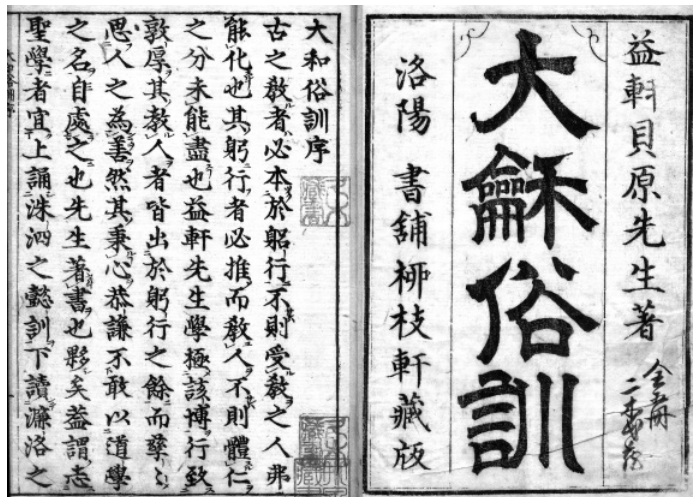 益軒貝原先生著
大龢俗訓
洛陽 書舖柳枝軒藏版
大和俗訓序
古之教者必本於躬行不則受教之人弗
能化也其躬行者必推而教人不則體仁
之分未能盡也益軒先生學極該博行致
敦厚其教人者皆出於躬行之餘而孳〻
思人之為善然其秉心恭謙不敢以道學
之名自處之也先生著書也夥矣蓋謂志
聖學者宜上誦洙泗之懿訓下讀濂洛之